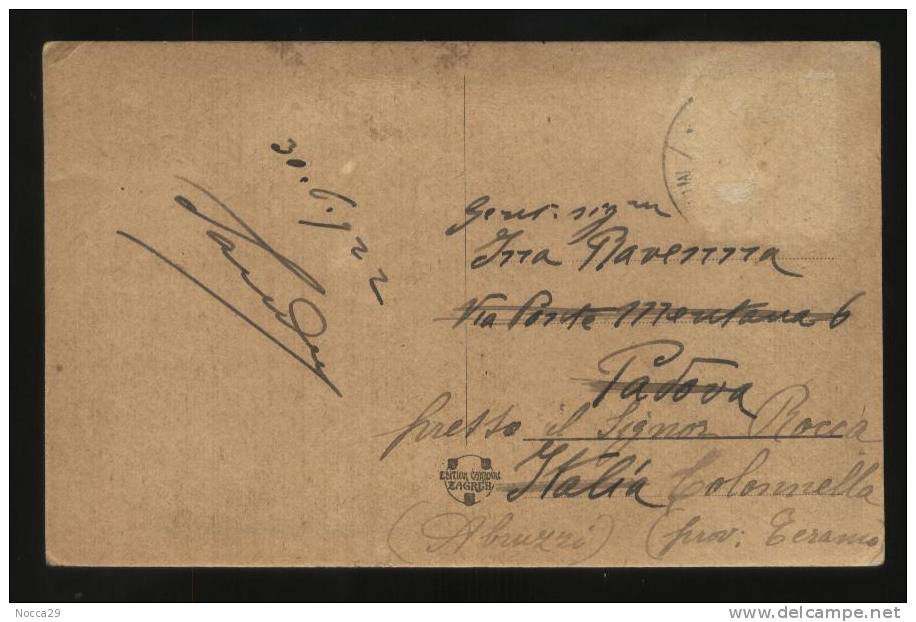 30.6.922
Gent. sigra
Ina Ravenna
Via Ponte Mentana 6
Padova
presso il Signor Rocca
Italia Colonnella
(Abruzzi) (prov: Teramo)
EDITION
ZAGREB
Nocca29
delcampe.net